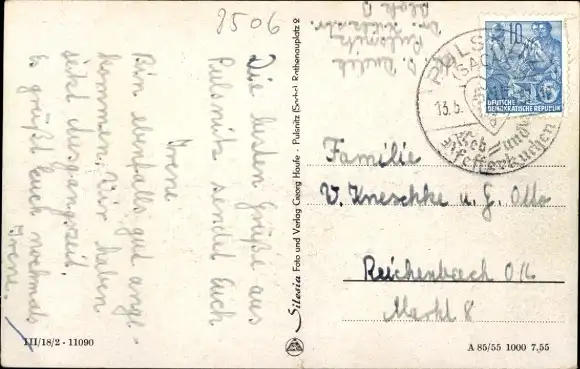 9506
Die besten Grüße aus
Pulsnitz sendet Euch
Irene
Bin ebenfalls gut ange-
kommen. Wir haben
jetzt Ausgangszeit.
Es grüßt Euch nochmals
Irene.
III/18/2 - 11090
Silesia Foto und Verlag Georg Haufe - Pulsnitz (Sachs) Rathausplatz 2
Pulsnitz
Block B
PULSNITZ
(SACHS)
13.5.
Pfefferkuchen
10
DEUTSCHE
DEMOKRATISCHE REPUBLIK
Familie
V. Kneschke u. G. Otto
Reichenbach O/L
Markt 8
A 85/55 1000 7,55